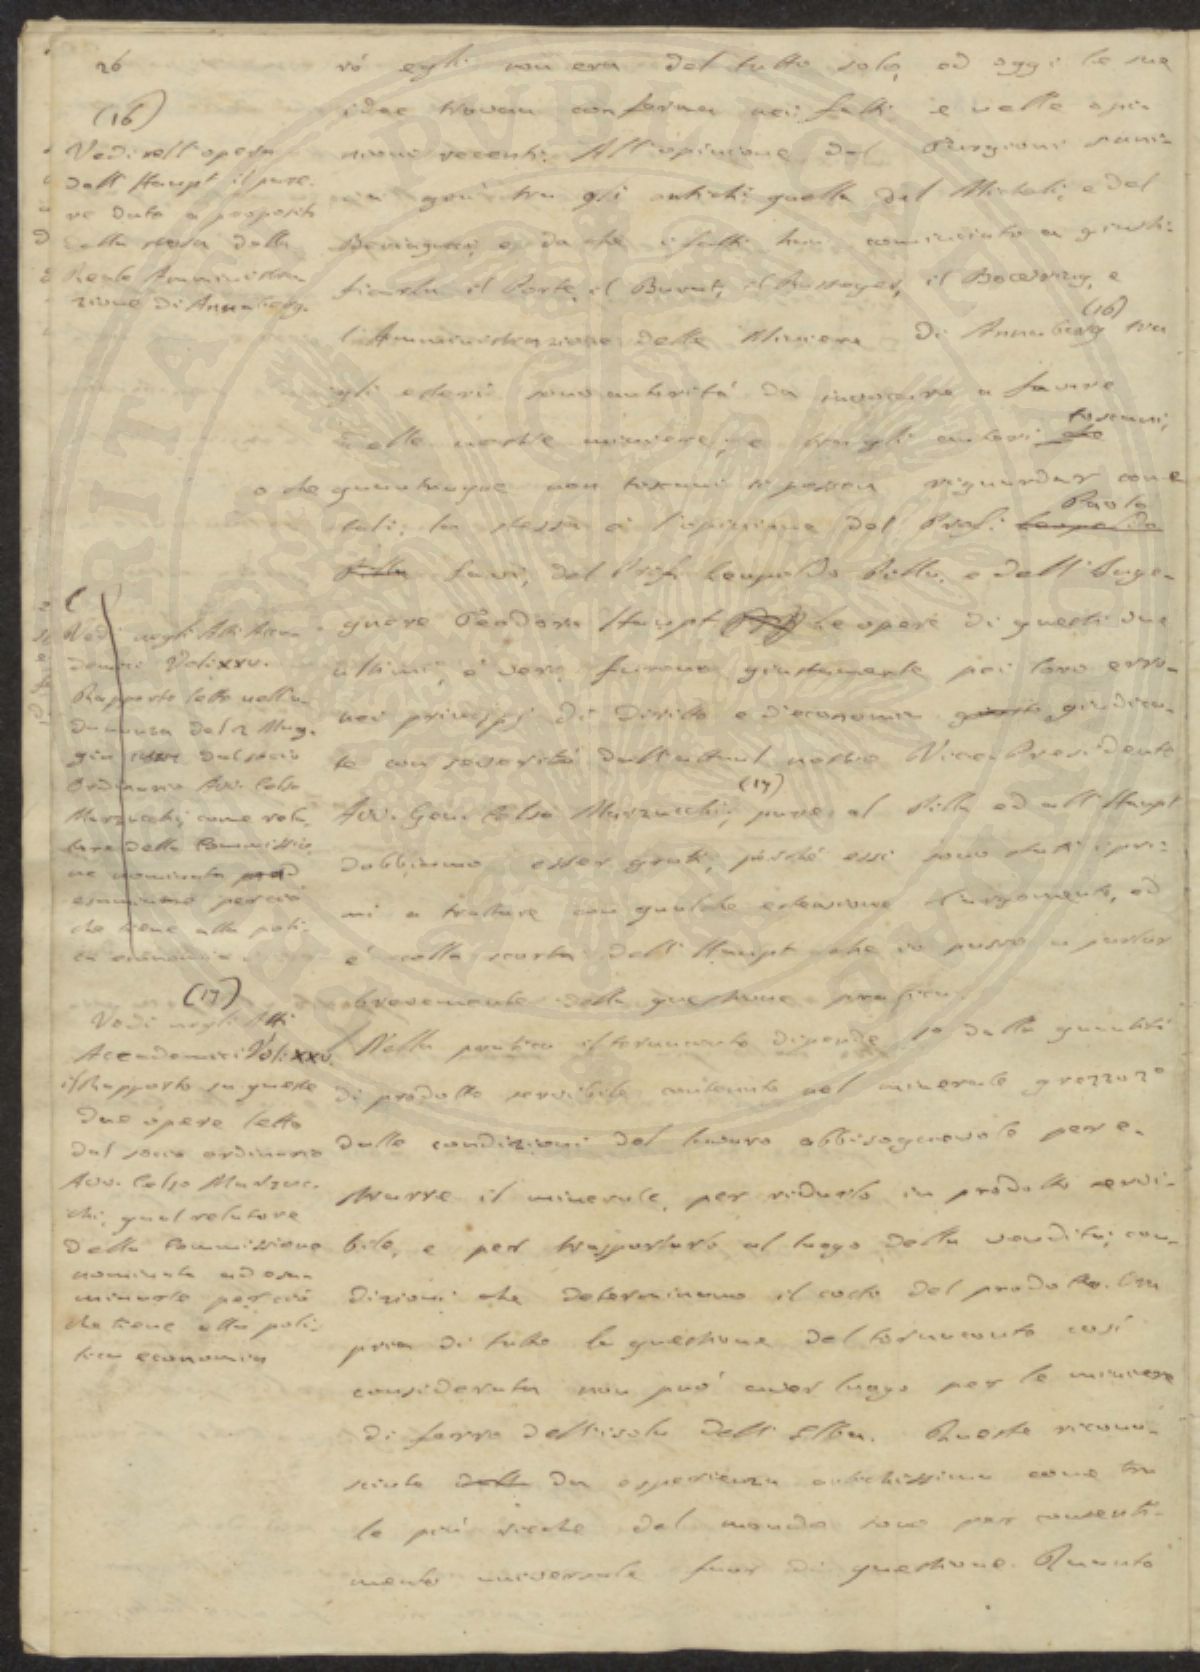 26
rò egli non era del tutto solo, ed oggi le sue
idee trovan conferma nei fatti e nelle opi-
nioni recenti. All'opinione del Targioni
già tra gli antichi quella del Micheli, e del
e da che i fatti han cominciato a giusti-
ficarla il Porte, il Burat, il Russeger, il e
l'Amministrazione delle Miniere di Annaberg (16) tra
gli esteri sono autorità da invocare a favore
delle nostre miniere; e tra gli autori che toscani,
o che quantunque non toscani si possan riguardar come
tali, la stessa è l'opinione del Prof. Leopoldo Paolo
Pilla Savi, del Prof. Leopoldo Pilla, e dell'Inge-
gnere Teodoro Haupt. Le opere di questi due
ultimi, è vero, furono giustamente pei loro erro-
nei principj di diritto e d'economia giusto giudica-
te con severità dall'attual nostro Vice-Presidente
Avv. Gen. Celso Marzucchi; (17) pure al Pilla ed all'Haupt
dobbiamo esser grati, perché essi sono stati i pri-
mi a trattare con qualche estensione l'argomento, ed
è colla scorta dell'Haupt che io passo a parlar
brevemente della questione pratica.
Nella pratica il tornaconto dipende 1o dalla quantità
di prodotto servibile contenuto nel minerale grezzo 2o
dalle condizioni del lavoro abbisognevole per e-
strarre il minerale, per ridurlo in prodotto servi-
bile, e per trasportarlo al luogo della vendita; con-
dizioni che determinano il costo del prodotto. Im
pria di tutto la questione del tornaconto così
considerata non può aver luogo per le miniere
di ferro dell'isola dell'Elba. Queste ricono-
sciute dall da esperienza antichissima come tra
le più ricche del mondo sono per consenti-
mento universale fuor di questione. Quanto
(16)
Vedi nell'opera
dell'Haupt il pare-
re dato a proposito
della stessa dalla
Reale Amministra
zione di Annaberg.
Vedi negli Atti Acca-
demici Vol. XXV.
Rapporto letto nell'a-
dunanza del 2 Mag-
gio dal socio
Ordinario Avv. Celso
Marzucchi, come rela-
tore della Commissio
ne nominata
esaminarne per ciò
che tiene alla politi-
ca economia
(17)
Vedi negli Atti
Accademici Vol. XXV.
il Rapporto su queste
due opere letto
dal socio ordinario
Avv. Celso Marzuc-
chi, qual relatore
della Commissione
nominata ad esa-
minarle per ciò
che tiene alla poli-
tica economia